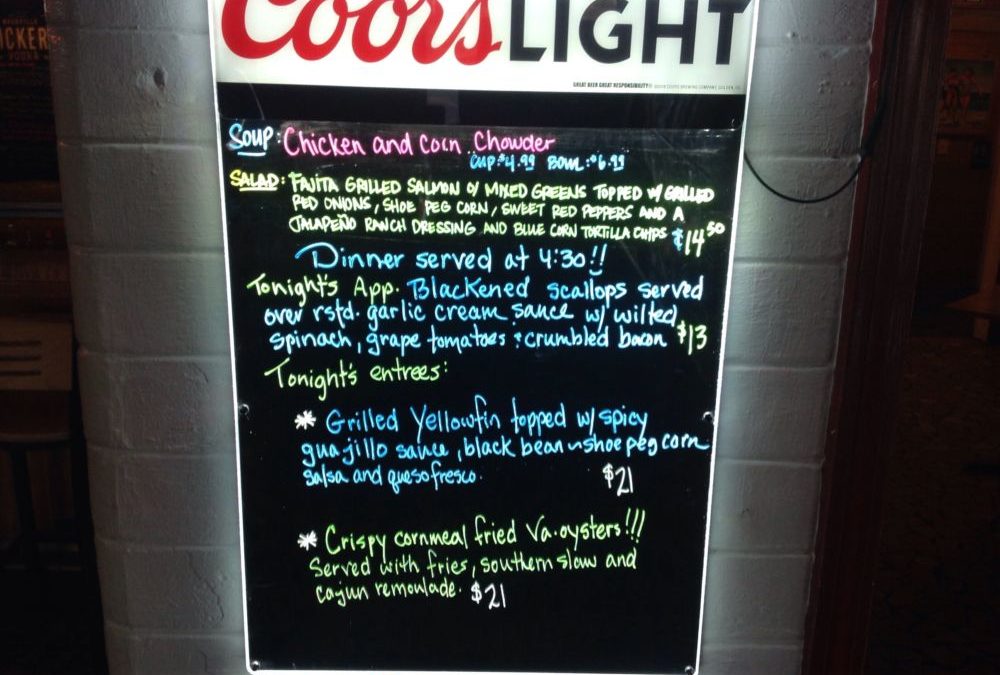 Coors LIGHT
GREAT BEER GREAT RESPONSIBILITY®
Soup: Chicken and Corn Chowder
Cup $4.99 Bowl: $6.99
SALAD: FAJITA GRILLED SALMON O/ MIXED GREENS TOPPED W/ GRILLED
RED ONIONS, SHOE PEG CORN, SWEET RED PEPPERS AND A
JALAPEÑO RANCH DRESSING AND BLUE CORN TORTILLA CHIPS $14.50
Dinner served at 4:30!!
Tonight's App. Blackened scallops served
over rstd. garlic cream sauce w/ wilted
spinach, grape tomatoes & crumbled bacon $13
Tonight's entrees:
* Grilled Yellowfin topped w/ spicy
guajillo sauce, black bean ~ shoe peg corn
salsa and queso fresco.
$21
* Crispy cornmeal fried Va. oysters!!!
Served with fries, southern slaw and
cajun remoulade. $21